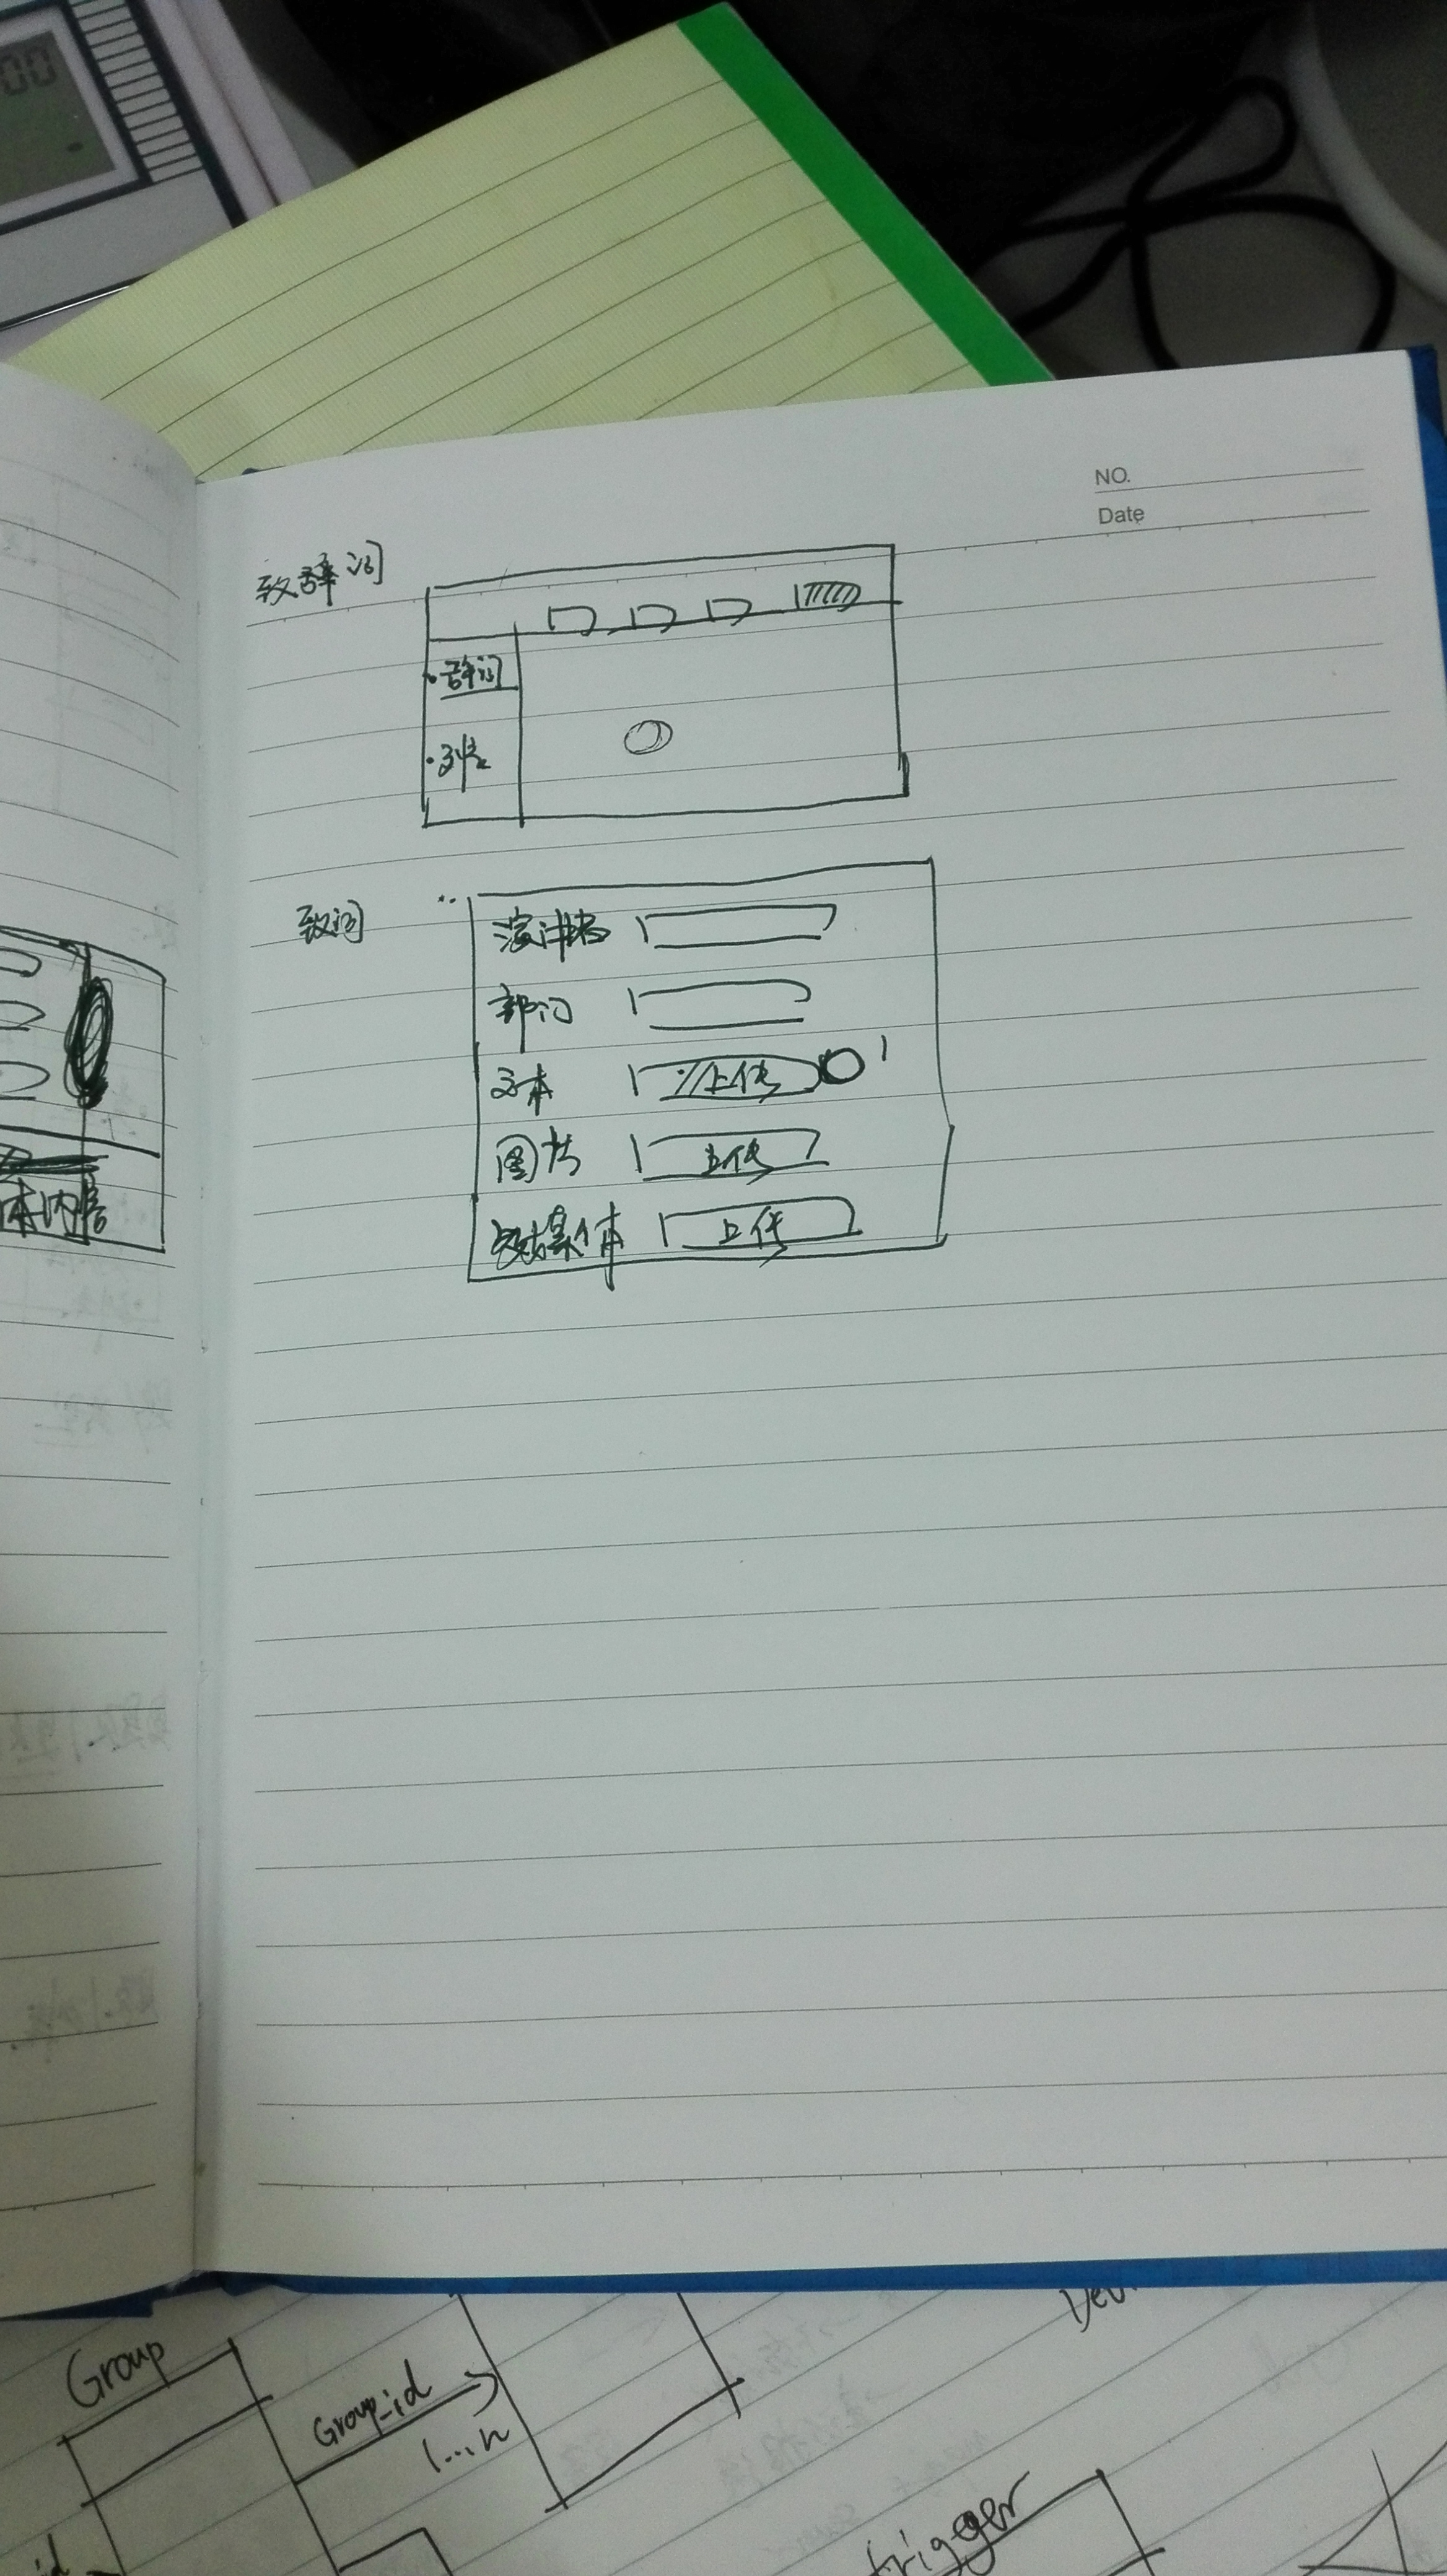 00
NO.
Date
致辞词
辞词
致词
演讲者
部门
文本
上传
图片
上传
多媒体
上传
体内容
Group
Group_id
1...n
trigger
id